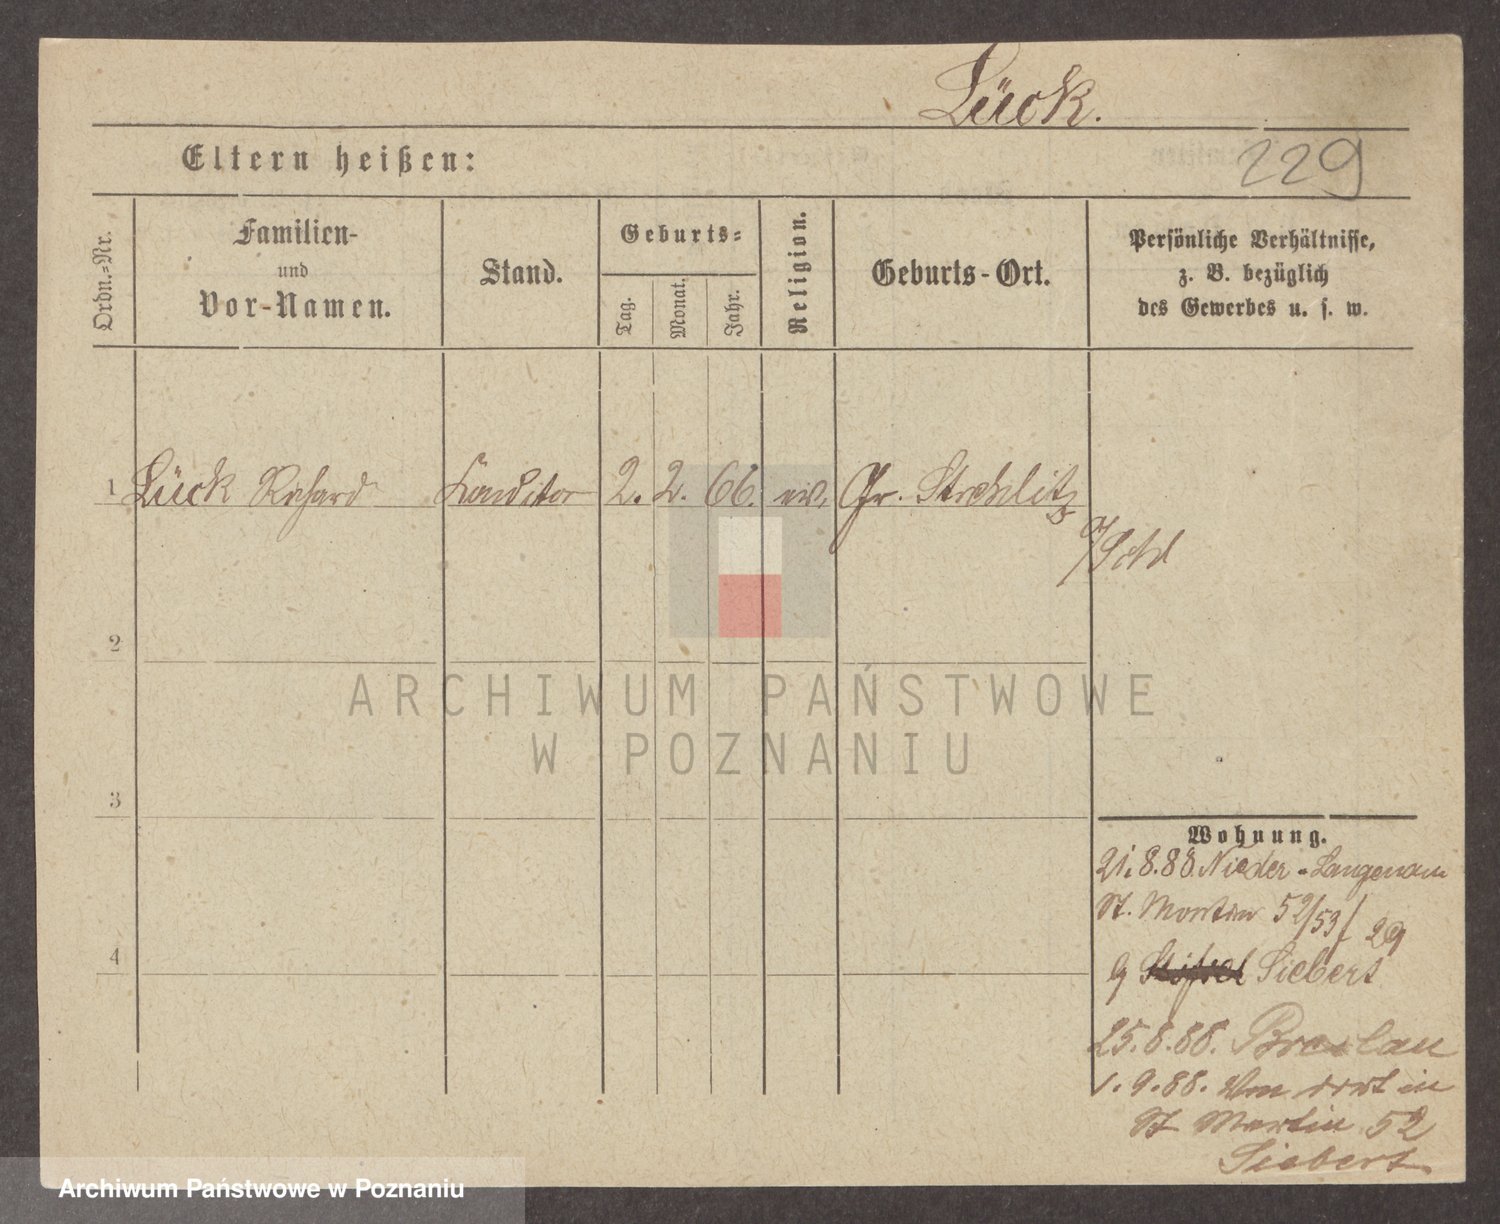 Lück.
Eltern heißen:
229
Ordn.=Nr.
Familien-
und
Vor-Namen.
Stand.
Geburts=
Tag.
Monat.
Jahr.
Religion.
Geburts-Ort.
Persönliche Verhältnisse,
z. B. bezüglich
des Gewerbes u. s. w.
1 Lück Richard Conditor 2. 2. 66. ev. Gr. Strehlitz
2
ARCHIWUM PAŃSTWOWE
W POZNANIU
3
Wohnung.
21.8.88. Nieder-Langenau
St. Martin 52/53 29
4
Siebert
25.8.88. Breslau
1.9.88. Von dort in
St Martin 52
Siebert
Archiwum Państwowe w Poznaniu